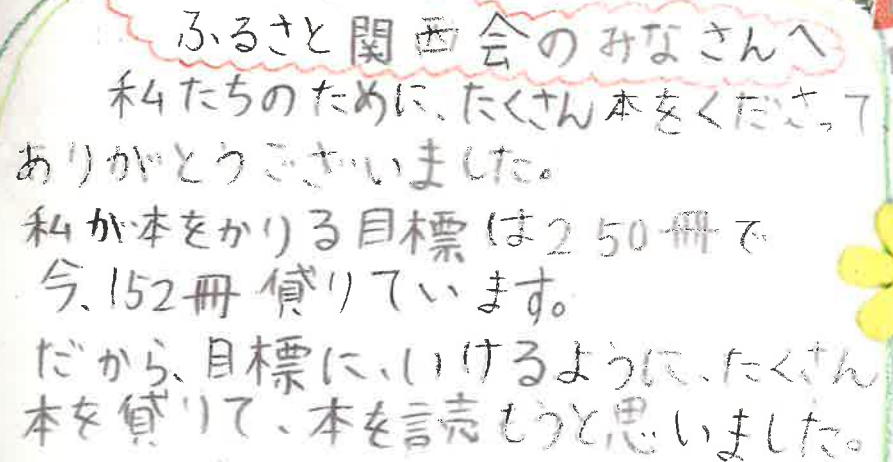 ふるさと関西会のみなさんへ
私たちのために、たくさん本をくださって
ありがとうございました。
私が本をかりる目標は250冊で
今、152冊借りています。
だから、目標に、いけるように、たくさん
本を借りて、本を読もうと思いました。